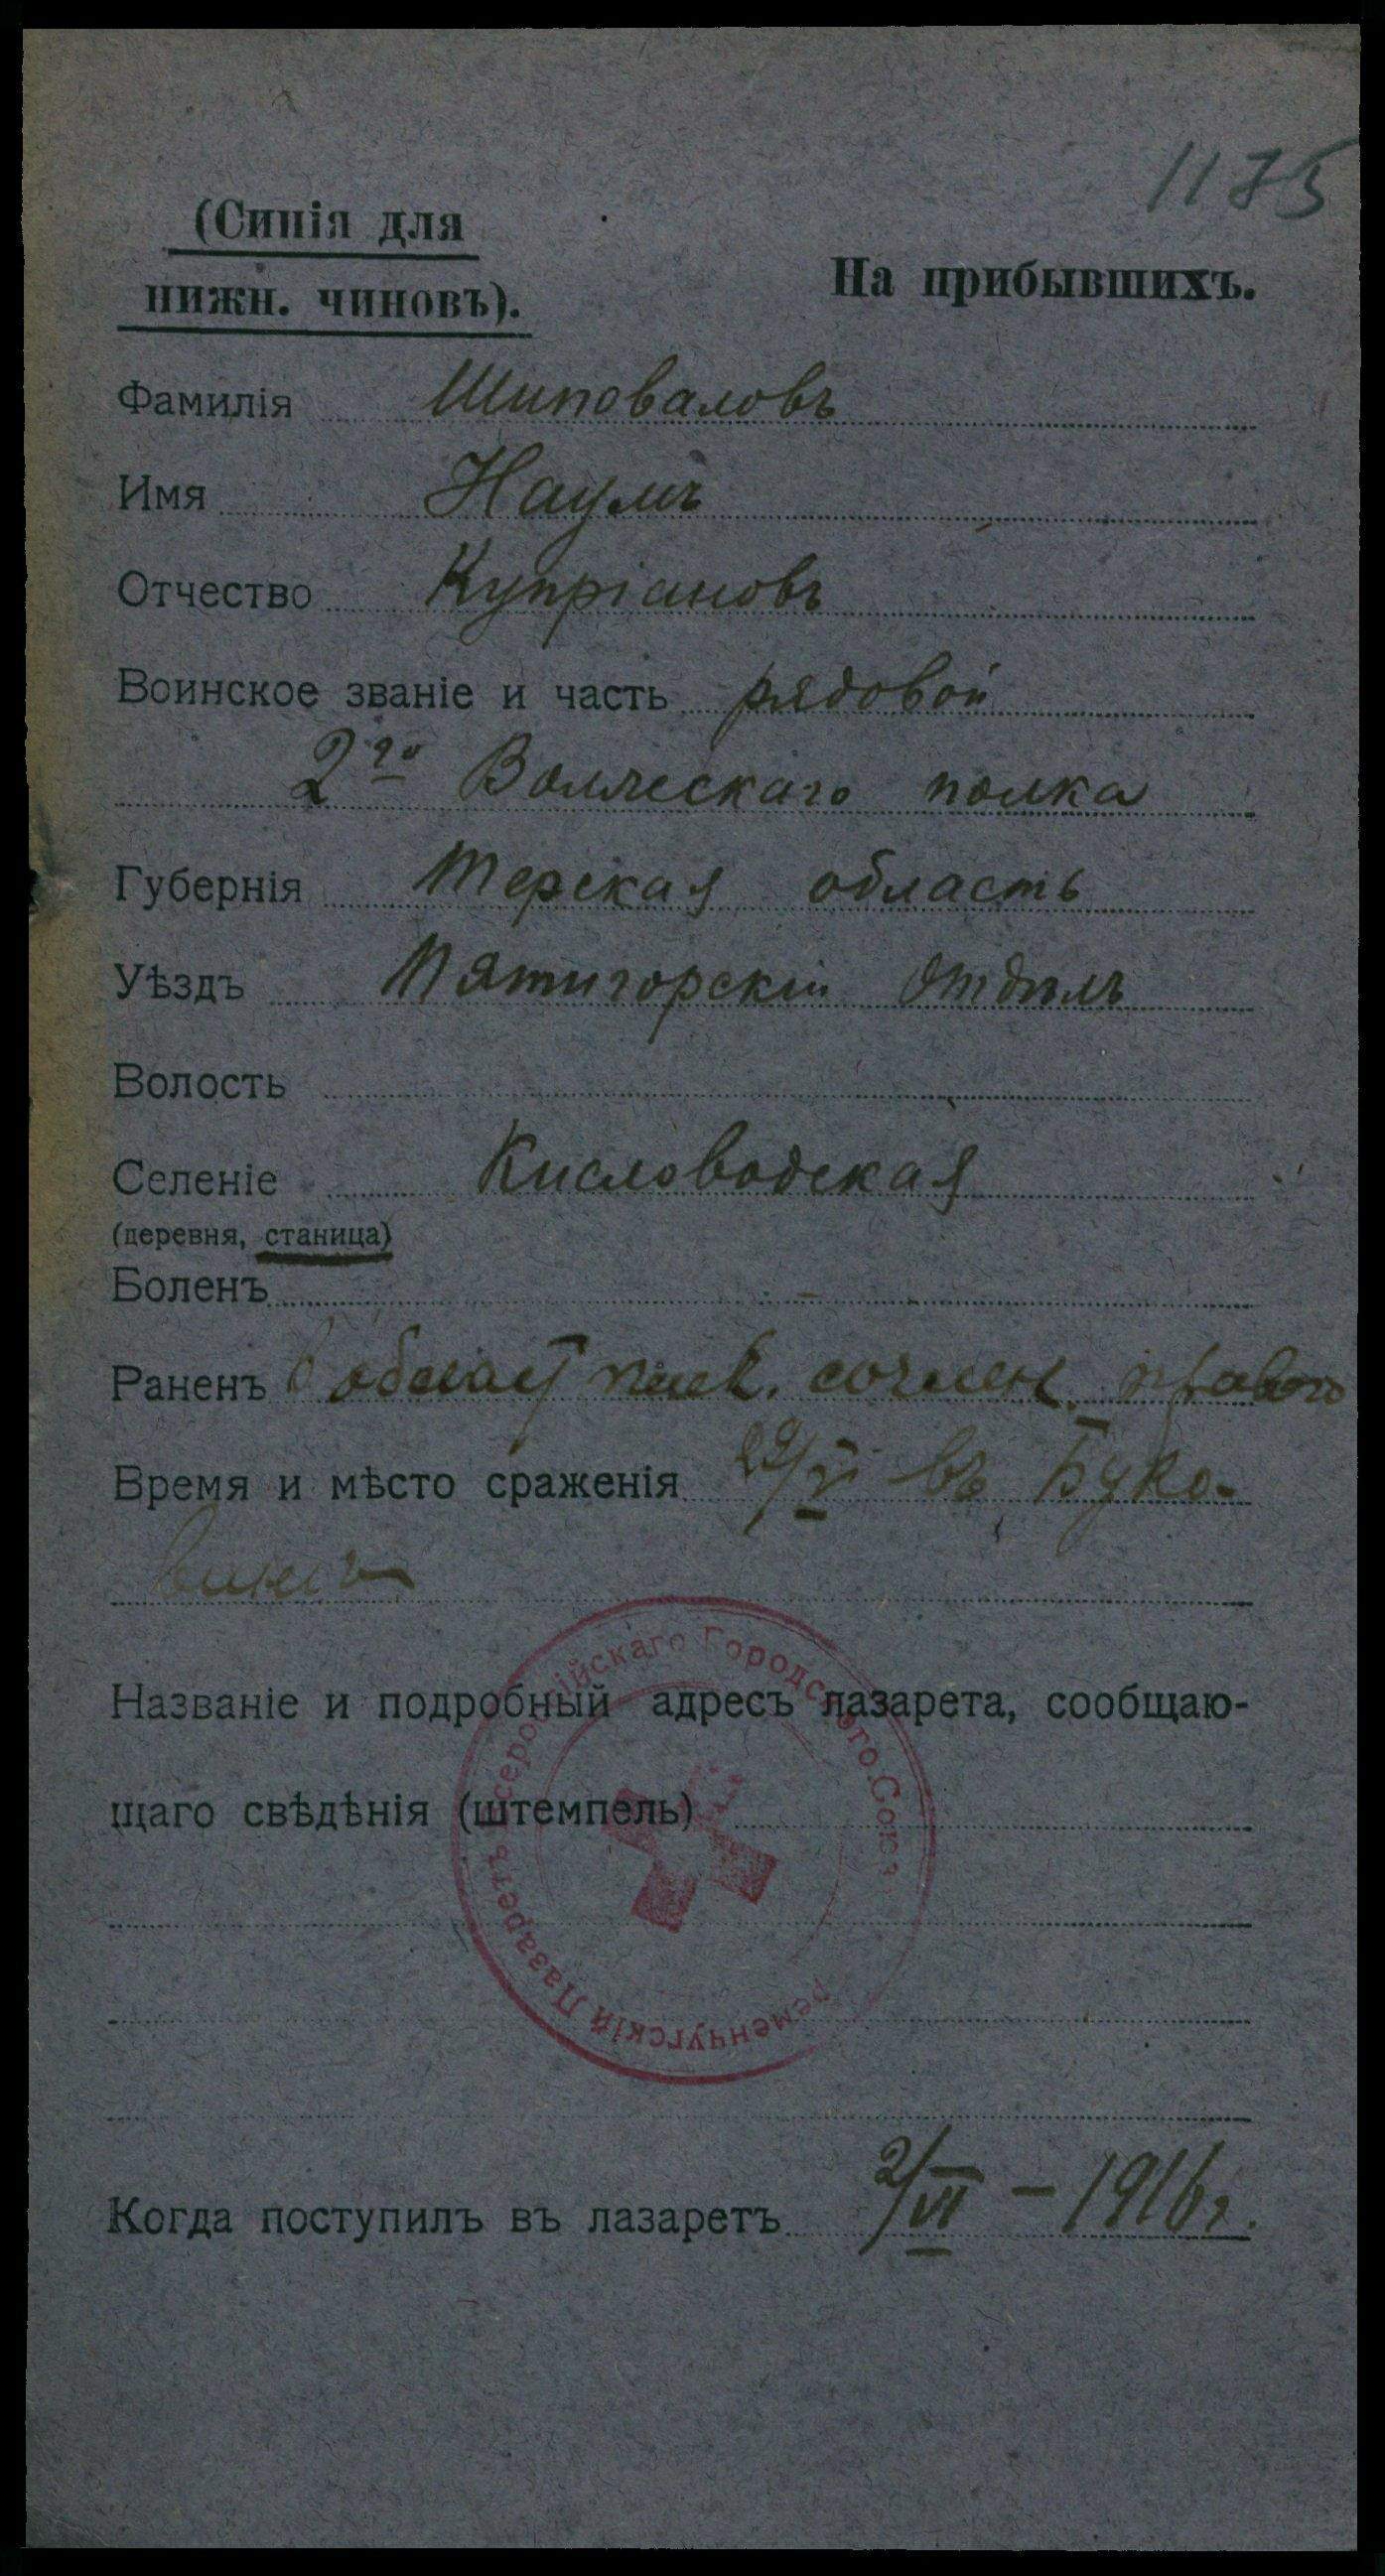 1175
(Синія для
нижн. чиновъ).
На прибывшихъ.
Фамилія Шиповаловъ
Имя Наумъ
Отчество Купріановъ
Воинское званіе и часть рядовой
2го Волжскаго полка
Губернія Терская область
Уѣздъ Пятигорскій отдѣлъ
Волость
Селеніе Кисловодская
(деревня, станица)
Боленъ
Раненъ В област плеч. сочлен. праваго
Время и мѣсто сраженія 29/V въ Буко-
винѣ
Названіе и подробный адресъ лазарета, сообщаю-
щаго свѣдѣнія (штемпель)
ременчугскій Лазаретъ серос ійскаго Городского Союз
Когда поступилъ въ лазаретъ 2/VI - 1916 г.